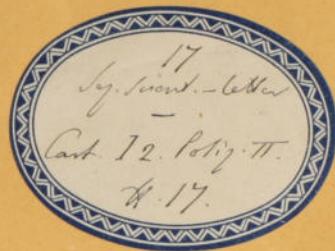 17
Sez. Scient. - letter
-
Cart. I 2. Poliz. II.
N. 17.